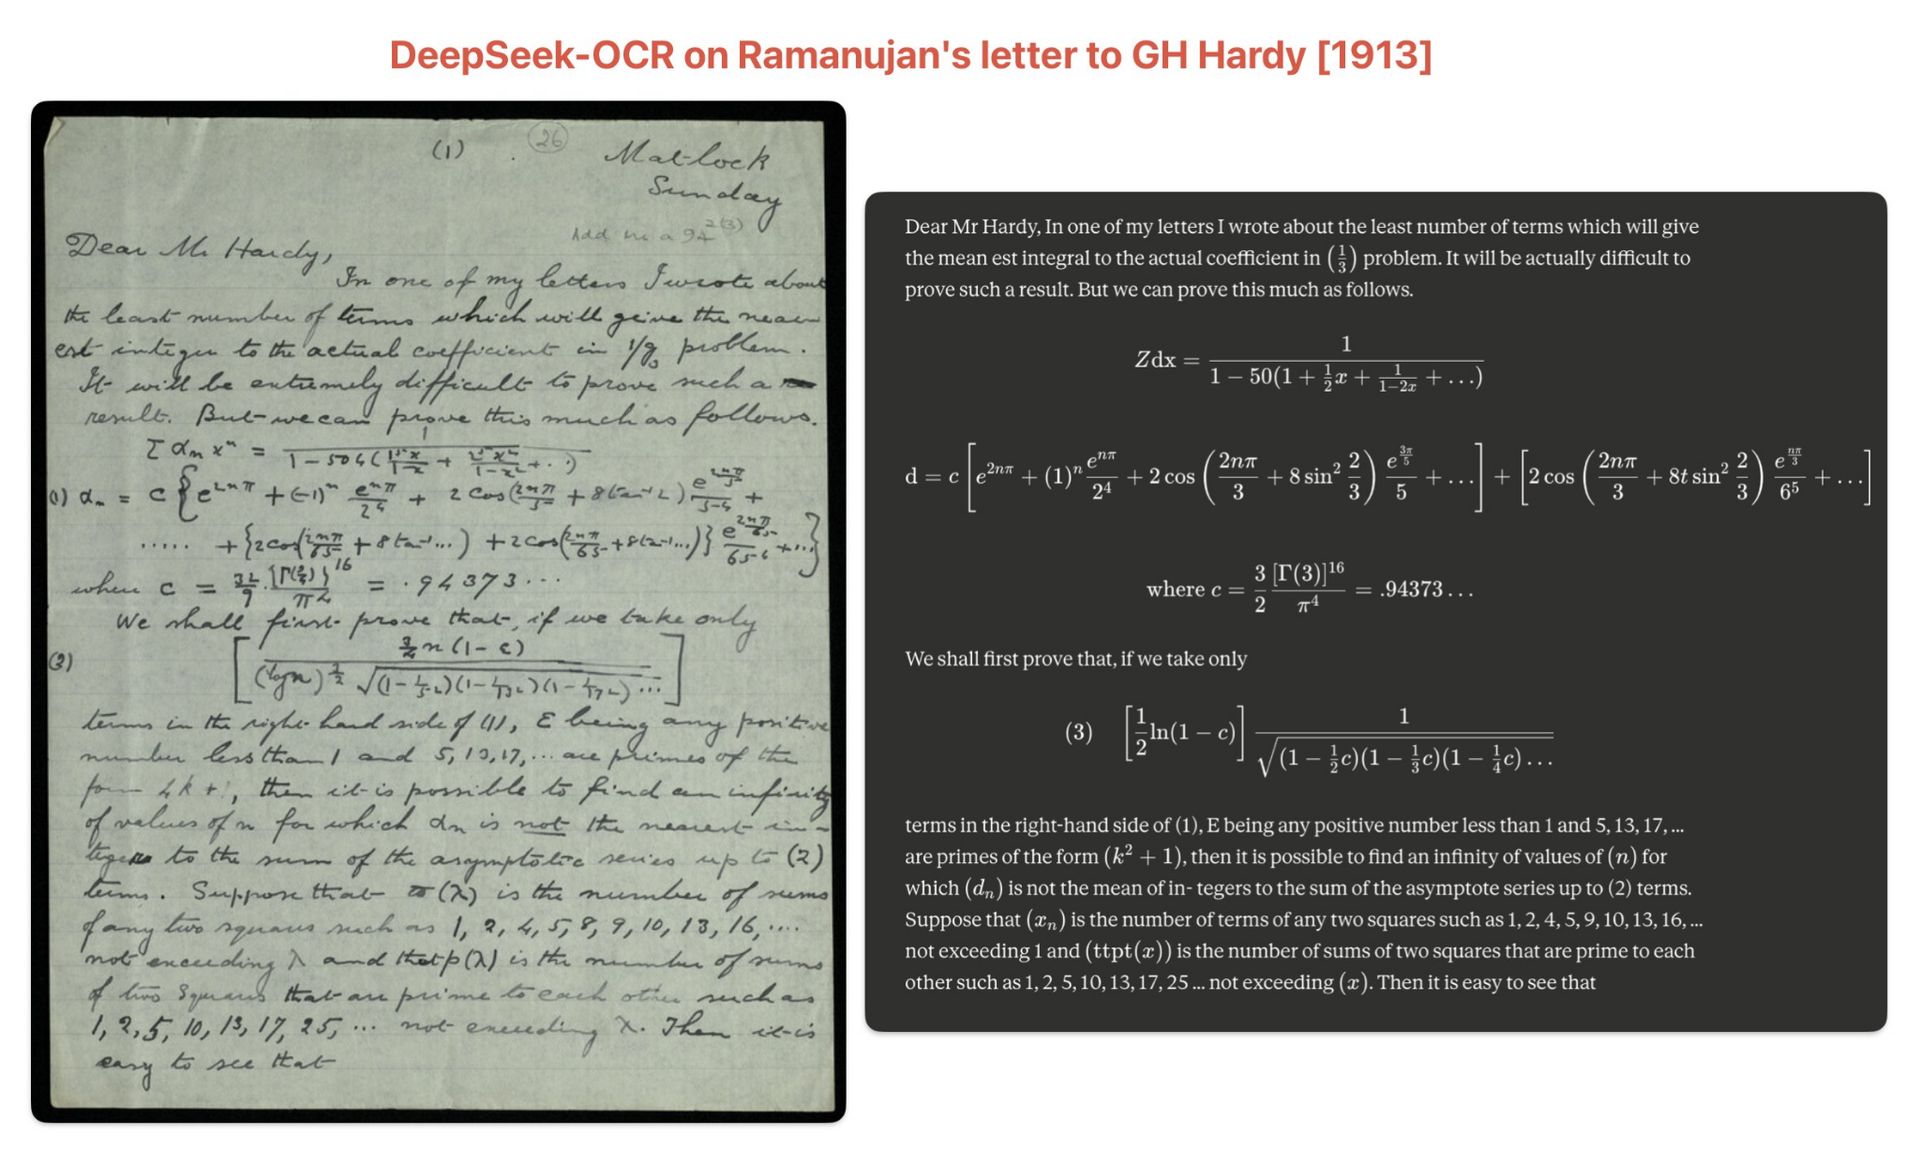 DeepSeek-OCR on Ramanujan's letter to GH Hardy [1913]
(1)
26
Matlock
Sunday
Add me a 94
Dear Mr. Hardy,
In one of my letters I wrote about
the least number of terms which will give the near
est integer to the actual coefficient in 1/g₃ problem.
It will be extremely difficult to prove such a
result. But we can prove this much as follows.
Σ αₙ xⁿ = 1 / (1 − 504 (1⁵x/(1−x) + 2⁵x²/(1−x²) + ...))
(1) αₙ = c { e^(2nπ) + (−1)ⁿ e^(nπ)/2⁴ + 2 cos(2nπ/5 + 8 tan⁻¹ 2) e^(2nπ/5)/5⁴ +
..... + {2 cos(2nπ/65 + 8 tan⁻¹...) + 2 cos(2nπ/65 + 8 tan⁻¹...)} e^(2nπ/65)/65⁴ + ...}
where c = = .94373...
We shall first prove that, if we take only
(2) [ n (1 − ε) / (log n)^(1/2) √((1 − 1/5²)(1 − 1/13²)(1 − 1/17²)... ]
terms in the right-hand side of (1), ε being any positive
number less than 1 and 5, 13, 17, ... are primes of the
form 4k + 1, then it is possible to find an infinity
of values of n for which αₙ is not the nearest in-
teger to the sum of the asymptotic series up to (2)
terms. Suppose that (λ) is the number of sums
of any two squares such as 1, 2, 4, 5, 8, 9, 10, 13, 16, ....
not exceeding λ and that p(λ) is the number of sums
of two squares that are prime to each other such as
1, 2, 5, 10, 13, 17, 25, ... not exceeding λ. Then it is
easy to see that
Dear Mr Hardy, In one of my letters I wrote about the least number of terms which will give
the mean est integral to the actual coefficient in (1/3) problem. It will be actually difficult to
prove such a result. But we can prove this much as follows.
Zdx = 1 / (1 − 50(1 + 1/2 x + 1/(1−2x) + ...))
d = c [e^(2nπ) + (1)ⁿ e^(nπ)/2⁴ + 2 cos (2nπ/3 + 8 sin² 2/3) e^(3π/5)/5 + ...] + [2 cos (2nπ/3 + 8t sin² 2/3) e^(nπ/3)/6⁵ + ...]
where c = 3/2 [Γ(3)]¹⁶/π⁴ = .94373...
We shall first prove that, if we take only
(3) [1/2 ln(1 − c)] 1 / √((1 − 1/2 c)(1 − 1/3 c)(1 − 1/4 c)...
terms in the right-hand side of (1), E being any positive number less than 1 and 5, 13, 17, ...
are primes of the form (k² + 1), then it is possible to find an infinity of values of (n) for
which (dₙ) is not the mean of in- tegers to the sum of the asymptote series up to (2) terms.
Suppose that (xₙ) is the number of terms of any two squares such as 1, 2, 4, 5, 9, 10, 13, 16, ...
not exceeding 1 and (ttpt(x)) is the number of sums of two squares that are prime to each
other such as 1, 2, 5, 10, 13, 17, 25 ... not exceeding (x). Then it is easy to see that